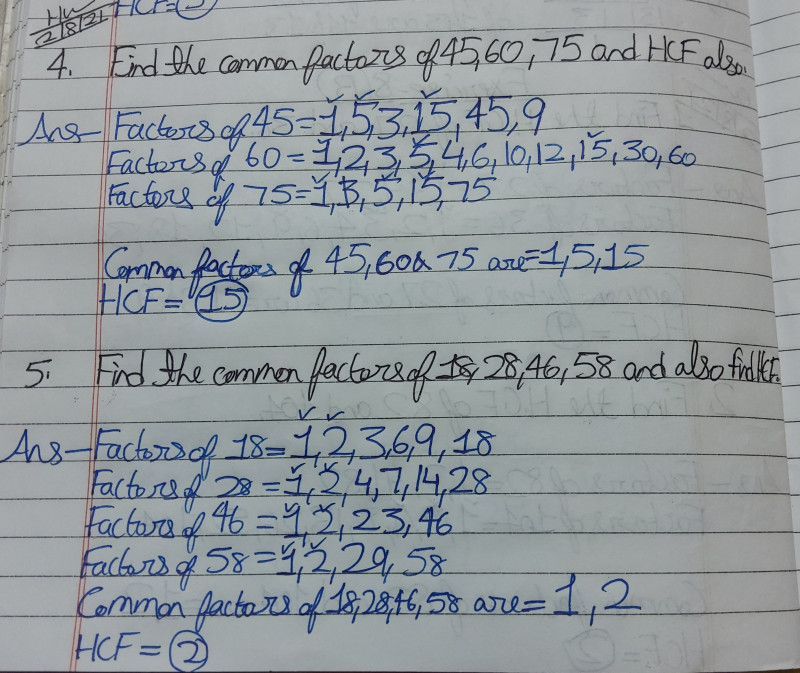 HW
2/8/21
HCF=
4. Find the common factors of 45,60,75 and HCF also.
Ans- Factors of 45=1,5,3,15,45,9
Factors of 60=1,2,3,5,4,6,10,12,15,30,60
Factors of 75=1,3,5,15,75
Common factors of 45,60& 75 are=1,5,15
HCF=15
5. Find the common factors of 18,28,46,58 and also find HCF.
Ans-Factors of 18=1,2,3,6,9,18
Factors of 28=1,2,4,7,14,28
Factors of 46=1,2,23,46
Factors of 58=1,2,29,58
Common factors of 18,28,46,58 are=1,2
HCF=2